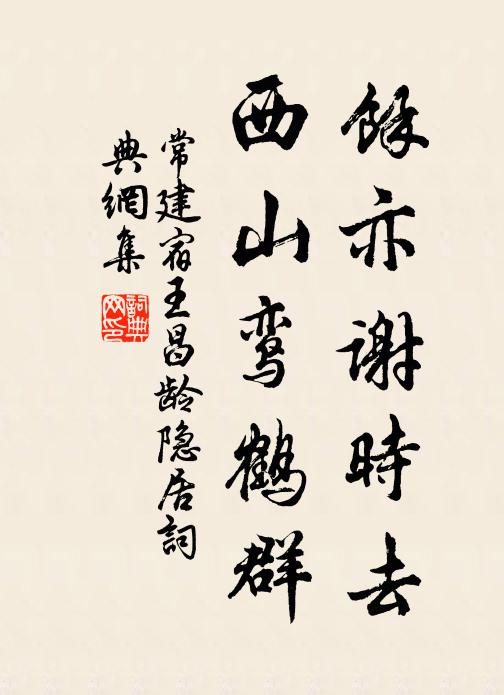 餘亦謝時去
西山鸾鶴群
常建宿王昌龄隐居詞
典網集
詞典网印